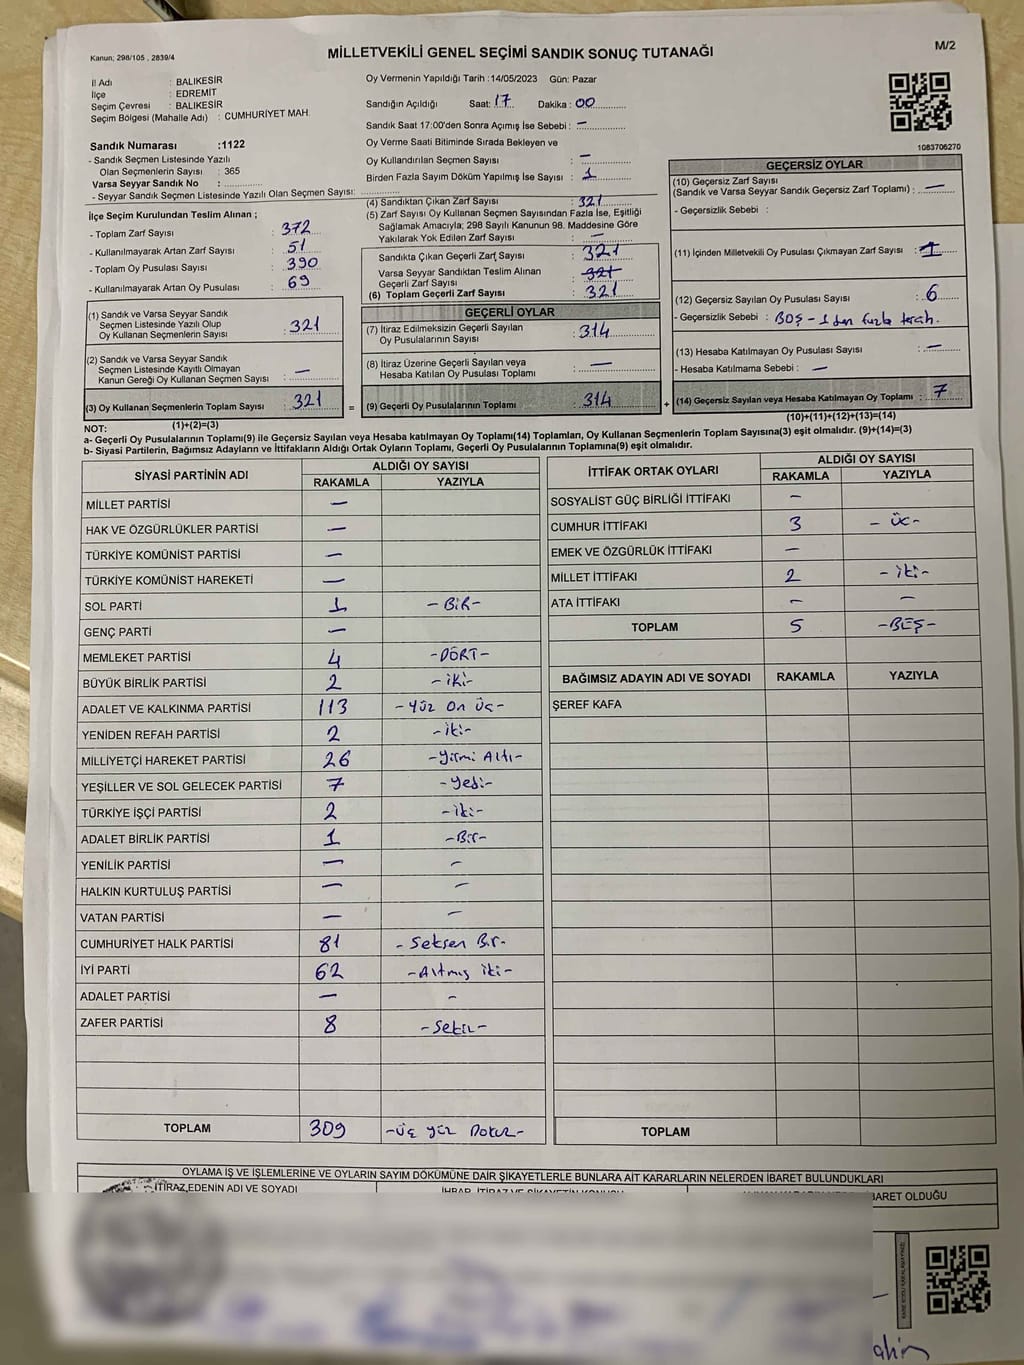 Kanun; 298/105 , 2839/4
MİLLETVEKİLİ GENEL SEÇİMİ SANDIK SONUÇ TUTANAĞI
M/2
İl Adı : BALIKESİR
İlçe : EDREMİT
Seçim Çevresi : BALIKESİR
Seçim Bölgesi (Mahalle Adı) : CUMHURİYET MAH.
Sandık Numarası :1122
- Sandık Seçmen Listesinde Yazılı
Olan Seçmenlerin Sayısı : 365
Varsa Seyyar Sandık No :
- Seyyar Sandık Seçmen Listesinde Yazılı Olan Seçmen Sayısı:
İlçe Seçim Kurulundan Teslim Alınan ;
- Toplam Zarf Sayısı : 372
- Kullanılmayarak Artan Zarf Sayısı : 51
- Toplam Oy Pusulası Sayısı : 390
- Kullanılmayarak Artan Oy Pusulası : 69
(1) Sandık ve Varsa Seyyar Sandık
Seçmen Listesinde Yazılı Olup
Oy Kullanan Seçmenlerin Sayısı : 321
(2) Sandık ve Varsa Seyyar Sandık
Seçmen Listesinde Kayıtlı Olmayan
Kanun Gereği Oy Kullanan Seçmen Sayısı : —
(3) Oy Kullanan Seçmenlerin Toplam Sayısı : 321
(1)+(2)=(3)
Oy Vermenin Yapıldığı Tarih :14/05/2023 Gün: Pazar
Sandığın Açıldığı Saat: 17 Dakika : 00
Sandık Saat 17:00'den Sonra Açımış İse Sebebi : —
Oy Verme Saati Bitiminde Sırada Bekleyen ve
Oy Kullandırılan Seçmen Sayısı : —
Birden Fazla Sayım Döküm Yapılmış İse Sayısı : 1
(4) Sandıktan Çıkan Zarf Sayısı : 321
(5) Zarf Sayısı Oy Kullanan Seçmen Sayısından Fazla İse, Eşitliği
Sağlamak Amacıyla; 298 Sayılı Kanunun 98. Maddesine Göre
Yakılarak Yok Edilen Zarf Sayısı : —
Sandıkta Çıkan Geçerli Zarf Sayısı : 321
Varsa Seyyar Sandıktan Teslim Alınan
Geçerli Zarf Sayısı : 321
(6) Toplam Geçerli Zarf Sayısı : 321
GEÇERLİ OYLAR
(7) İtiraz Edilmeksizin Geçerli Sayılan
Oy Pusulalarının Sayısı : 314
(8) İtiraz Üzerine Geçerli Sayılan veya
Hesaba Katılan Oy Pusulası Toplamı : —
= (9) Geçerli Oy Pusulalarının Toplamı : 314
1083706270
GEÇERSİZ OYLAR
(10) Geçersiz Zarf Sayısı
(Sandık ve Varsa Seyyar Sandık Geçersiz Zarf Toplamı) : —
- Geçersizlik Sebebi :
(11) İçinden Milletvekili Oy Pusulası Çıkmayan Zarf Sayısı : 1
(12) Geçersiz Sayılan Oy Pusulası Sayısı : 6
- Geçersizlik Sebebi : BOŞ - 1 den fazla tercih.
(13) Hesaba Katılmayan Oy Pusulası Sayısı : —
- Hesaba Katılmama Sebebi : —
+ (14) Geçersiz Sayılan veya Hesaba Katılmayan Oy Toplamı : 7
(10)+(11)+(12)+(13)=(14)
NOT:
a- Geçerli Oy Pusulalarının Toplamı(9) ile Geçersiz Sayılan veya Hesaba katılmayan Oy Toplamı(14) Toplamları, Oy Kullanan Seçmenlerin Toplam Sayısına(3) eşit olmalıdır. (9)+(14)=(3)
b- Siyasi Partilerin, Bağımsız Adayların ve İttifakların Aldığı Ortak Oyların Toplamı, Geçerli Oy Pusulalarının Toplamına(9) eşit olmalıdır.
SİYASİ PARTİNİN ADI ALDIĞI OY SAYISI
RAKAMLA YAZIYLA
MİLLET PARTİSİ —
HAK VE ÖZGÜRLÜKLER PARTİSİ —
TÜRKİYE KOMÜNİST PARTİSİ —
TÜRKİYE KOMÜNİST HAREKETİ —
SOL PARTİ 1 - BİR -
GENÇ PARTİ —
MEMLEKET PARTİSİ 4 - DÖRT -
BÜYÜK BİRLİK PARTİSİ 2 - iki -
ADALET VE KALKINMA PARTİSİ 113 - Yüz On Üç -
YENİDEN REFAH PARTİSİ 2 - iki -
MİLLİYETÇİ HAREKET PARTİSİ 26 - Yirmi Altı -
YEŞİLLER VE SOL GELECEK PARTİSİ 7 - Yedi -
TÜRKİYE İŞÇİ PARTİSİ 2 - iki -
ADALET BİRLİK PARTİSİ 1 - Bir -
YENİLİK PARTİSİ — —
HALKIN KURTULUŞ PARTİSİ — —
VATAN PARTİSİ — —
CUMHURİYET HALK PARTİSİ 81 - Seksen Bir -
İYİ PARTİ 62 - Altmış iki -
ADALET PARTİSİ — —
ZAFER PARTİSİ 8 - Sekiz -
TOPLAM 309 - Üç yüz Dokuz -
İTTİFAK ORTAK OYLARI ALDIĞI OY SAYISI
RAKAMLA YAZIYLA
SOSYALİST GÜÇ BİRLİĞİ İTTİFAKI —
CUMHUR İTTİFAKI 3 - Üç -
EMEK VE ÖZGÜRLÜK İTTİFAKI —
MİLLET İTTİFAKI 2 - iki -
ATA İTTİFAKI — —
TOPLAM 5 - BEŞ -
BAĞIMSIZ ADAYIN ADI VE SOYADI RAKAMLA YAZIYLA
ŞEREF KAFA
TOPLAM
OYLAMA İŞ VE İŞLEMLERİNE VE OYLARIN SAYIM DÖKÜMÜNE DAİR ŞİKAYETLERLE BUNLARA AİT KARARLARIN NELERDEN İBARET BULUNDUKLARI
İTİRAZ EDENİN ADI VE SOYADI
İBARET OLDUĞU